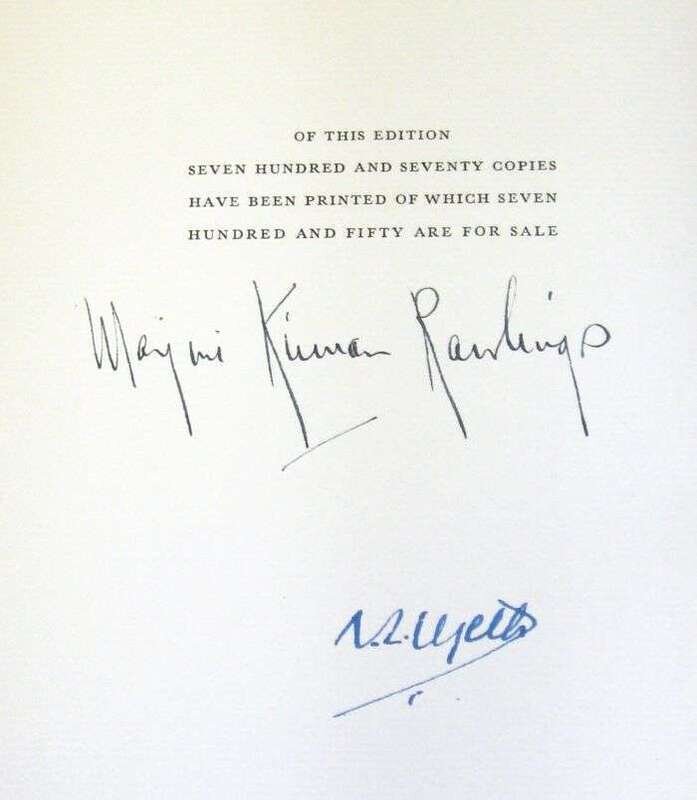 OF THIS EDITION
SEVEN HUNDRED AND SEVENTY COPIES
HAVE BEEN PRINTED OF WHICH SEVEN
HUNDRED AND FIFTY ARE FOR SALE
Marjorie Kinnan Rawlings
N.C. Wyeth